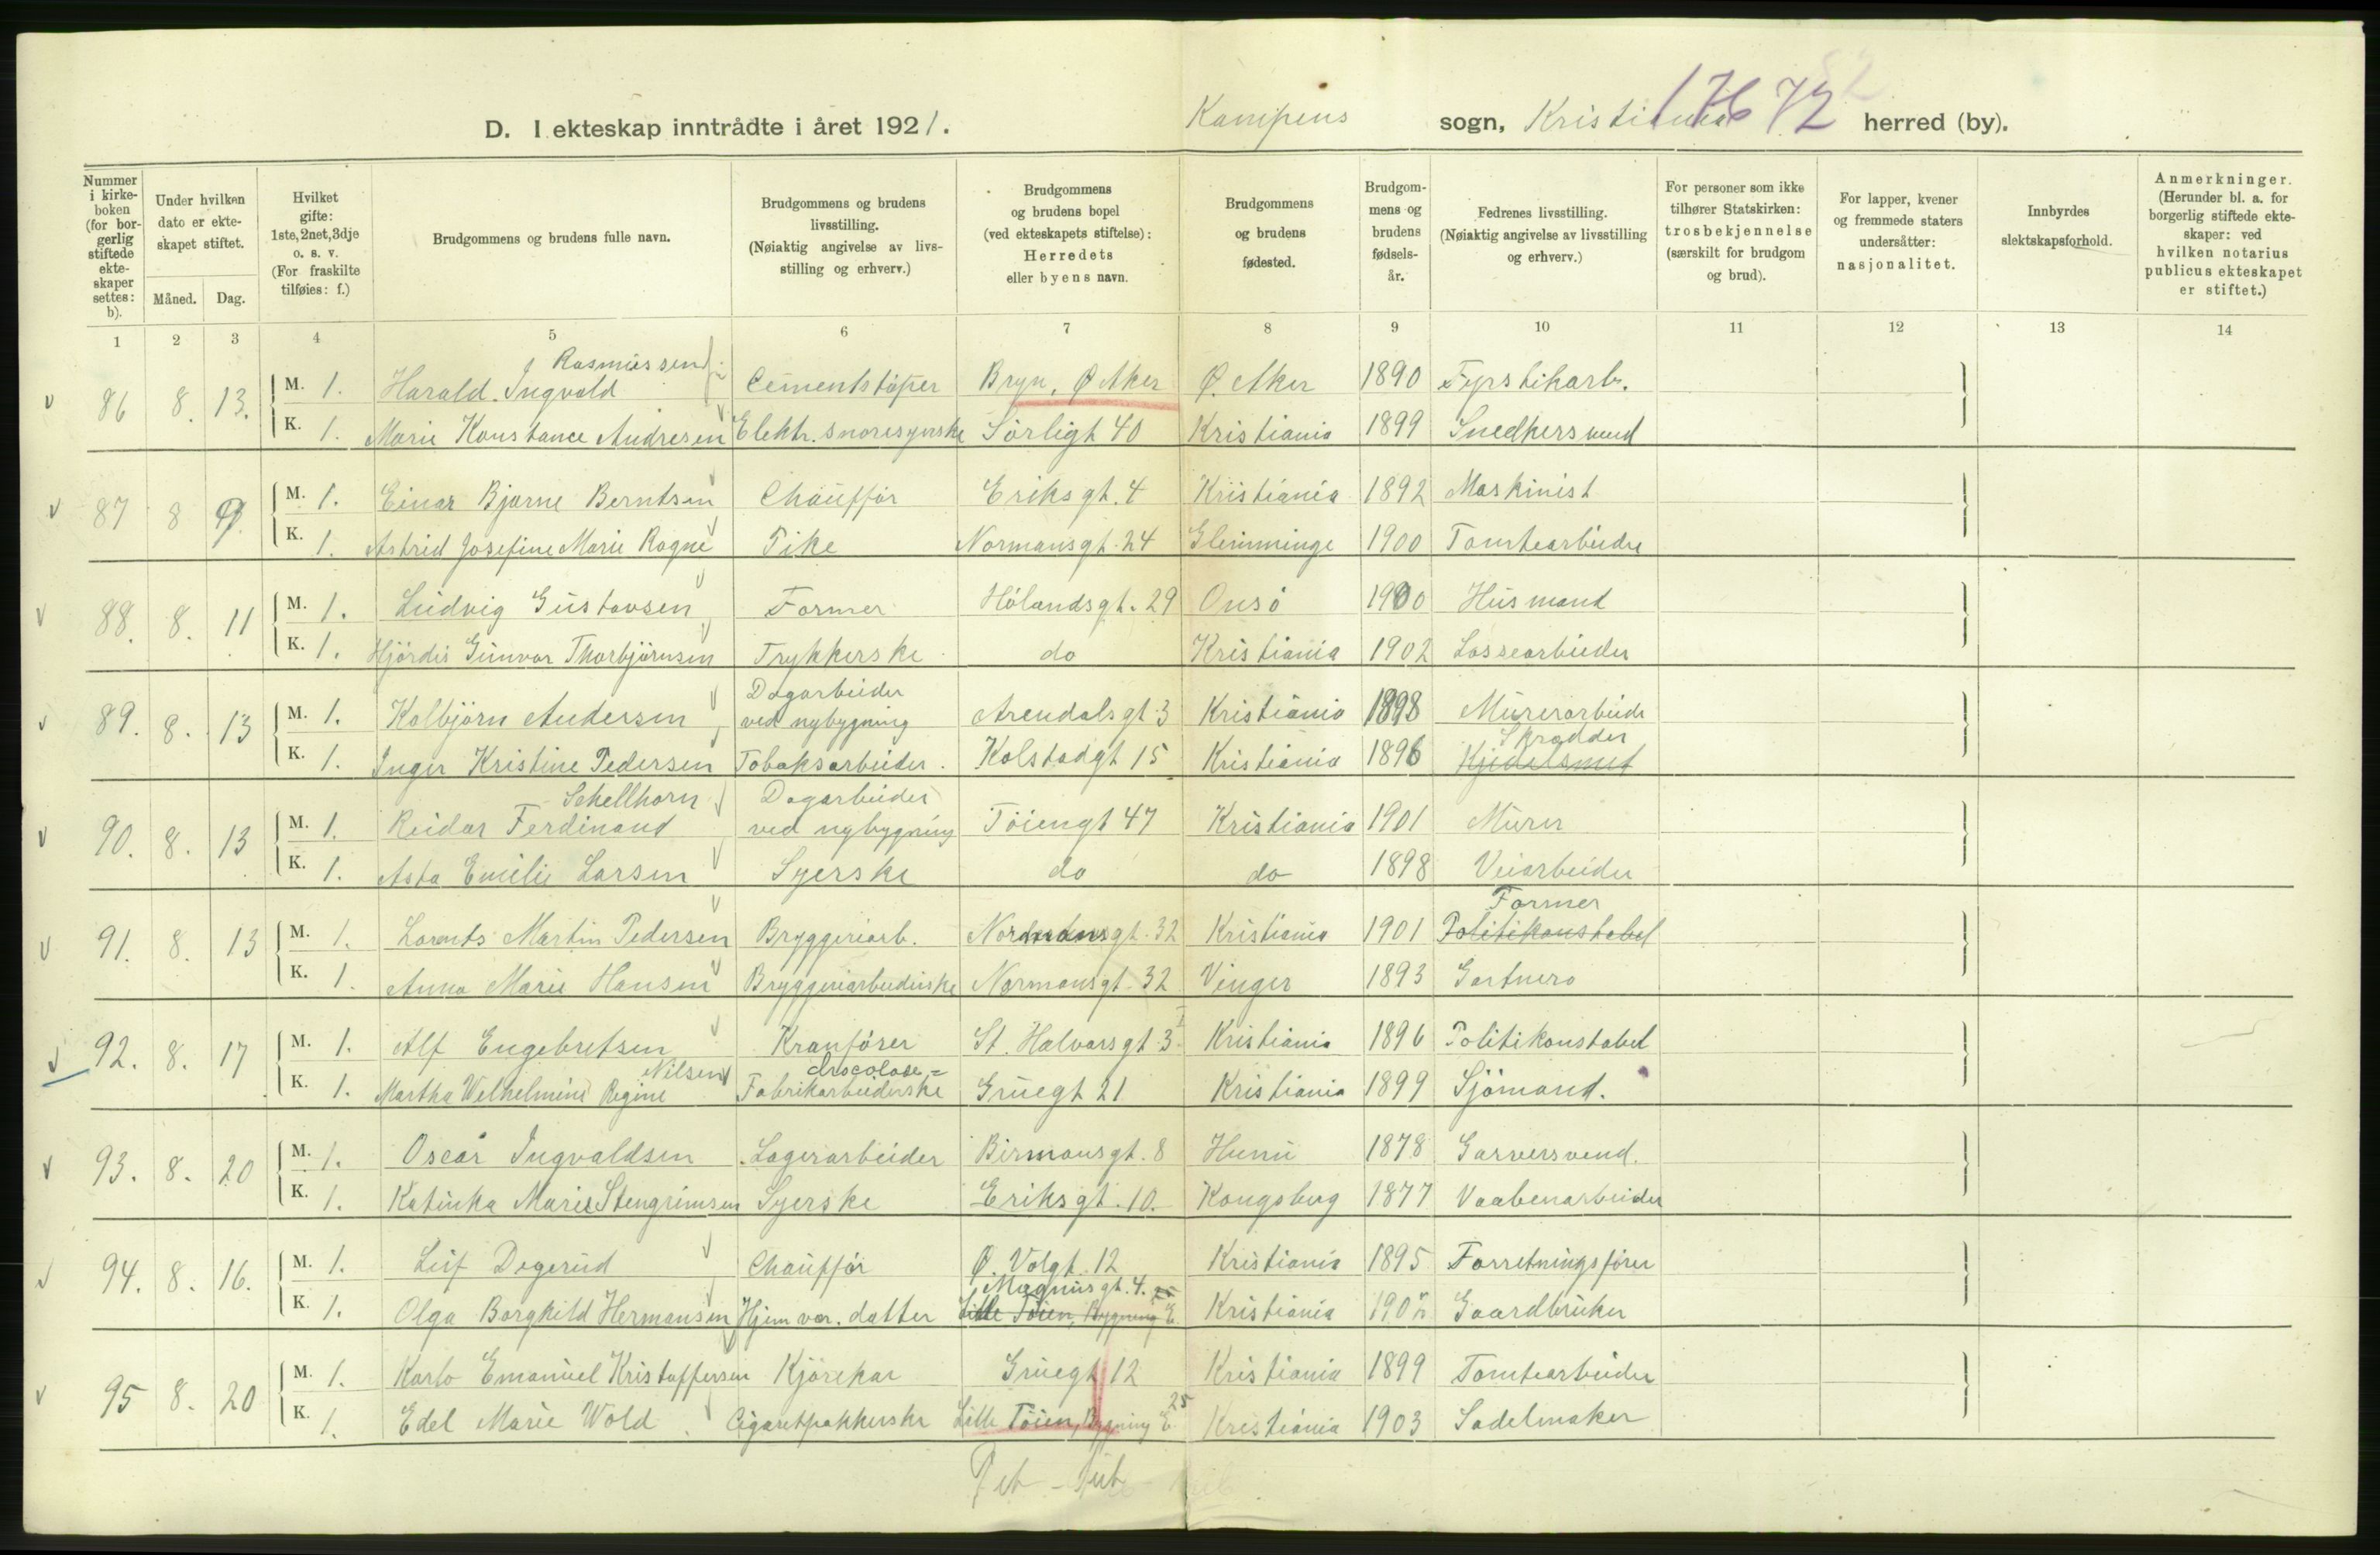 82
D. I ekteskap inntrådte i året 1921. Kampens sogn, Kristiania 17672 herred (by).
Nummer i kirkeboken (for borgerlig stiftede ekteskaper settes: b).
Under hvilken dato er ekteskapet stiftet.
Måned. Dag.
Hvilket gifte: 1ste, 2net, 3dje o. s. v. (For fraskilte tilføies: f.)
Brudgommens og brudens fulle navn.
Brudgommens og brudens livsstilling. (Nøiaktig angivelse av livsstilling og erhverv.)
Brudgommens og brudens bopel (ved ekteskapets stiftelse): Herredets eller byens navn.
Brudgommens og brudens fødested.
Brudgommens og brudens fødselsår.
Fedrenes livsstilling. (Nøiaktig angivelse av livsstilling og erhverv.)
For personer som ikke tilhører Statskirken: trosbekjennelse (særskilt for brudgom og brud).
For lapper, kvener og fremmede staters undersåtter: nasjonalitet.
Innbyrdes slektskapsforhold.
Anmerkninger. (Herunder bl. a. for borgerlig stiftede ekteskaper: ved hvilken notarius publicus ekteskapet er stiftet.)
1 2 3 4 5 6 7 8 9 10 11 12 13 14
Rasmussen
86 8. 13. M. 1. Harald Ingvald Cementstøper Bryn, Ø Aker Ø. Aker 1890 Fyrstikarb.
K. 1. Marie Konstance Andresen Elektr. snorespinske Sörligt 40 Kristiania 1899 Snedkersvend
87 8 9. M. 1. Einar Bjarne Berntsen Chauffør Eriksgt. 4 Kristiania 1892 Maskinist
K. 1. Astrid Josefine Marie Rogne Pike Normansgt. 24 Glemminge 1900 Tomtearbeider
88. 8. 11 M. 1. Ludvig Gustavsen Former Hölandsgt. 29 Onsö 1900 Husmand
K. 1. Hjördis Gunvor Thorbjörnsen Trykkerske do Kristiania 1902 Lossearbeider
Dagarbeider
89. 8. 13 M. 1. Kolbjörn Andersen ved nybygning Arendalsgt. 3 Kristiania 1898 Murerarbeide
Skrædder
K. 1. Inger Kristine Pedersen Tobaksarbeider. Kolstadgt 15 Kristiania 1896 Kjedelsmed
Schellhorn Dagarbeider
90. 8. 13 M. 1. Reidar Ferdinand ved nybygning Töiengt 47 Kristiania 1901 Murer
K. 1. Asta Emilie Larsen Syerske do do 1898 Veiarbeider
Former
91. 8. 13 M. 1. Lorents Martin Pedersen Bryggeriarb. Normansgt. 32 Kristiania 1901 Politikonstabel
K. 1. Anna Marie Hansen Bryggeriarbeiderske Normansgt. 32 Vinger 1893 Gartnero
92. 8. 17 M. 1. Alf Engebretsen Kranförer St. Halvarsgt. 3 I Kristiania 1896 Politikonstabel
Nilsen chocolade=
K. 1. Martha Welhelmine Regine Fabrikarbeiderske Gruegt 21 Kristiania 1899 Sjömand.
93. 8. 20 M. 1. Oscar Ingvaldsen Lagerarbeider Birmansgt. 8 Hunn 1878 Garversvend.
K. 1. Katinka Marie Stengrimsen Syerske Eriksgt. 10. Kongsberg 1877 Vaabenarbeider
94. 8. 16. M. 1. Leif Degerud Chauffør Ø. Volgt. 12 Kristiania 1895 Forretningsfører
Magnusgt. 4.
K. 1. Olga Borghild Hermansen Hjemvær. datter Lille Töien, Bygning E. Kristiania Gaardbruker
95 8. 20 M. 1. Karlo Emanuel Kristoffersen Kjörekar Gruegt 12 Kristiania 1899 Tomtearbeider
25
K. 1. Edel Marie Wold Cigaretpakkerske Lille Töien, Bygning E. Kristiania 1903 Sadelmaker